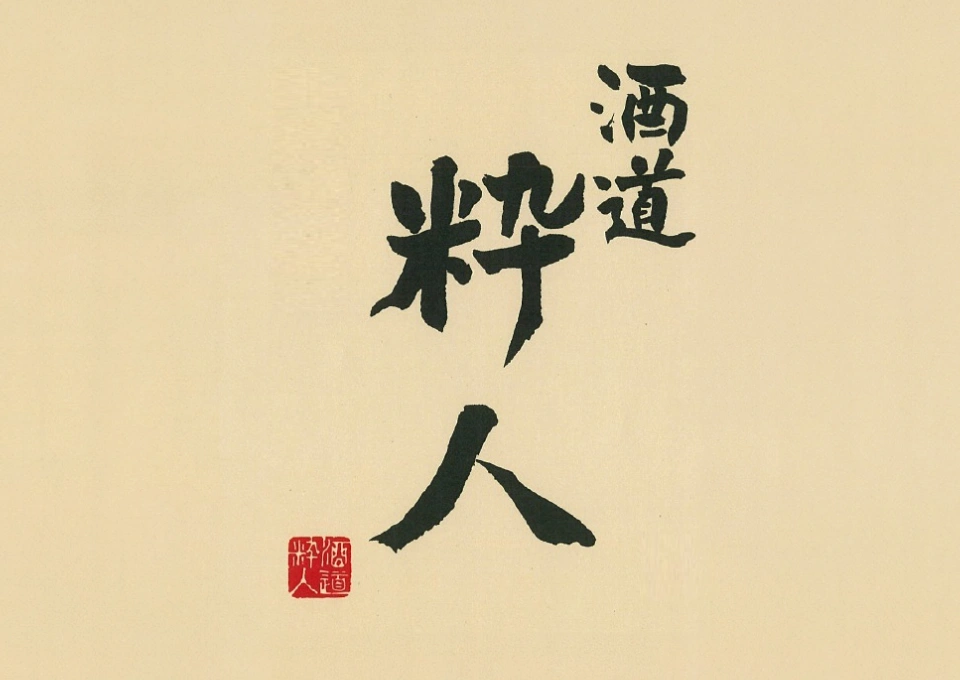 酒道
粋人
酒道
粋人